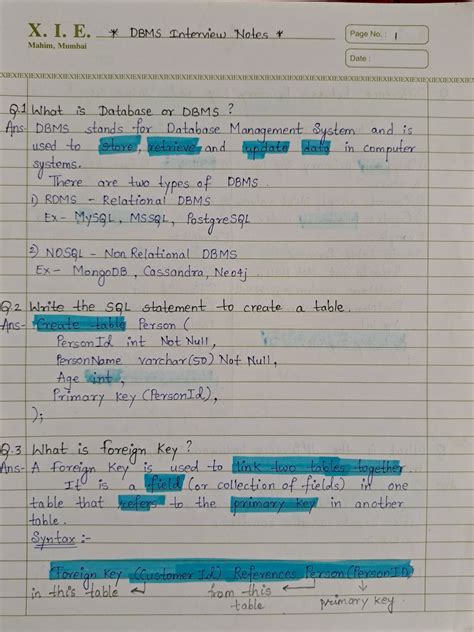 X. I. E.
Mahim, Mumbai
* DBMS Interview Notes *
Page No. : 1
Date :
Q.1 What is Database or DBMS ?
Ans- DBMS stands for Database Management System and is
used to store, retrieve and update data in computer
systems.
There are two types of DBMS
1) RDMS - Relational DBMS
Ex- MySQL, MSSQL, PostgreSQL
2) NOSQL - Non Relational DBMS
Ex- MongoDB, Cassandra, Neo4j.
Q.2 Write the SQL statement to create a table.
Ans- Create table Person (
PersonId int Not Null,
PersonName varchar(50) Not Null,
Age int,
Primary Key (PersonId),
);
Q.3 What is foreign Key ?
Ans- A foreign Key is used to link two tables together.
It is a field (or collection of fields) in one
table that refers to the primary key in another
table.
Syntax :-
Foreign Key (Customer Id) References Person (PersonID)
in this table from this primary key.
table